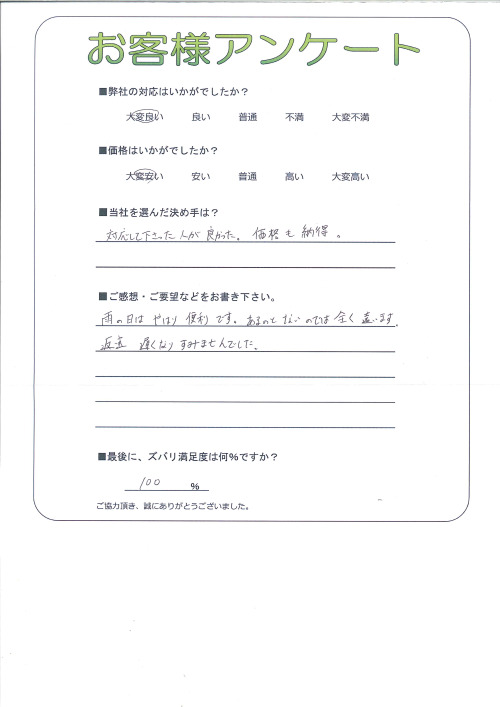 お客様アンケート
■弊社の対応はいかがでしたか？
大変良い 良い 普通 不満 大変不満
■価格はいかがでしたか？
大変安い 安い 普通 高い 大変高い
■当社を選んだ決め手は？
対応して下さった人が良かった。価格も納得。
■ご感想・ご要望などをお書き下さい。
雨の日はやはり便利です。あるのとないのでは全く違います。
遅くなりすみませんでした。
■最後に、ズバリ満足度は何%ですか？
100 %
ご協力頂き、誠にありがとうございました。